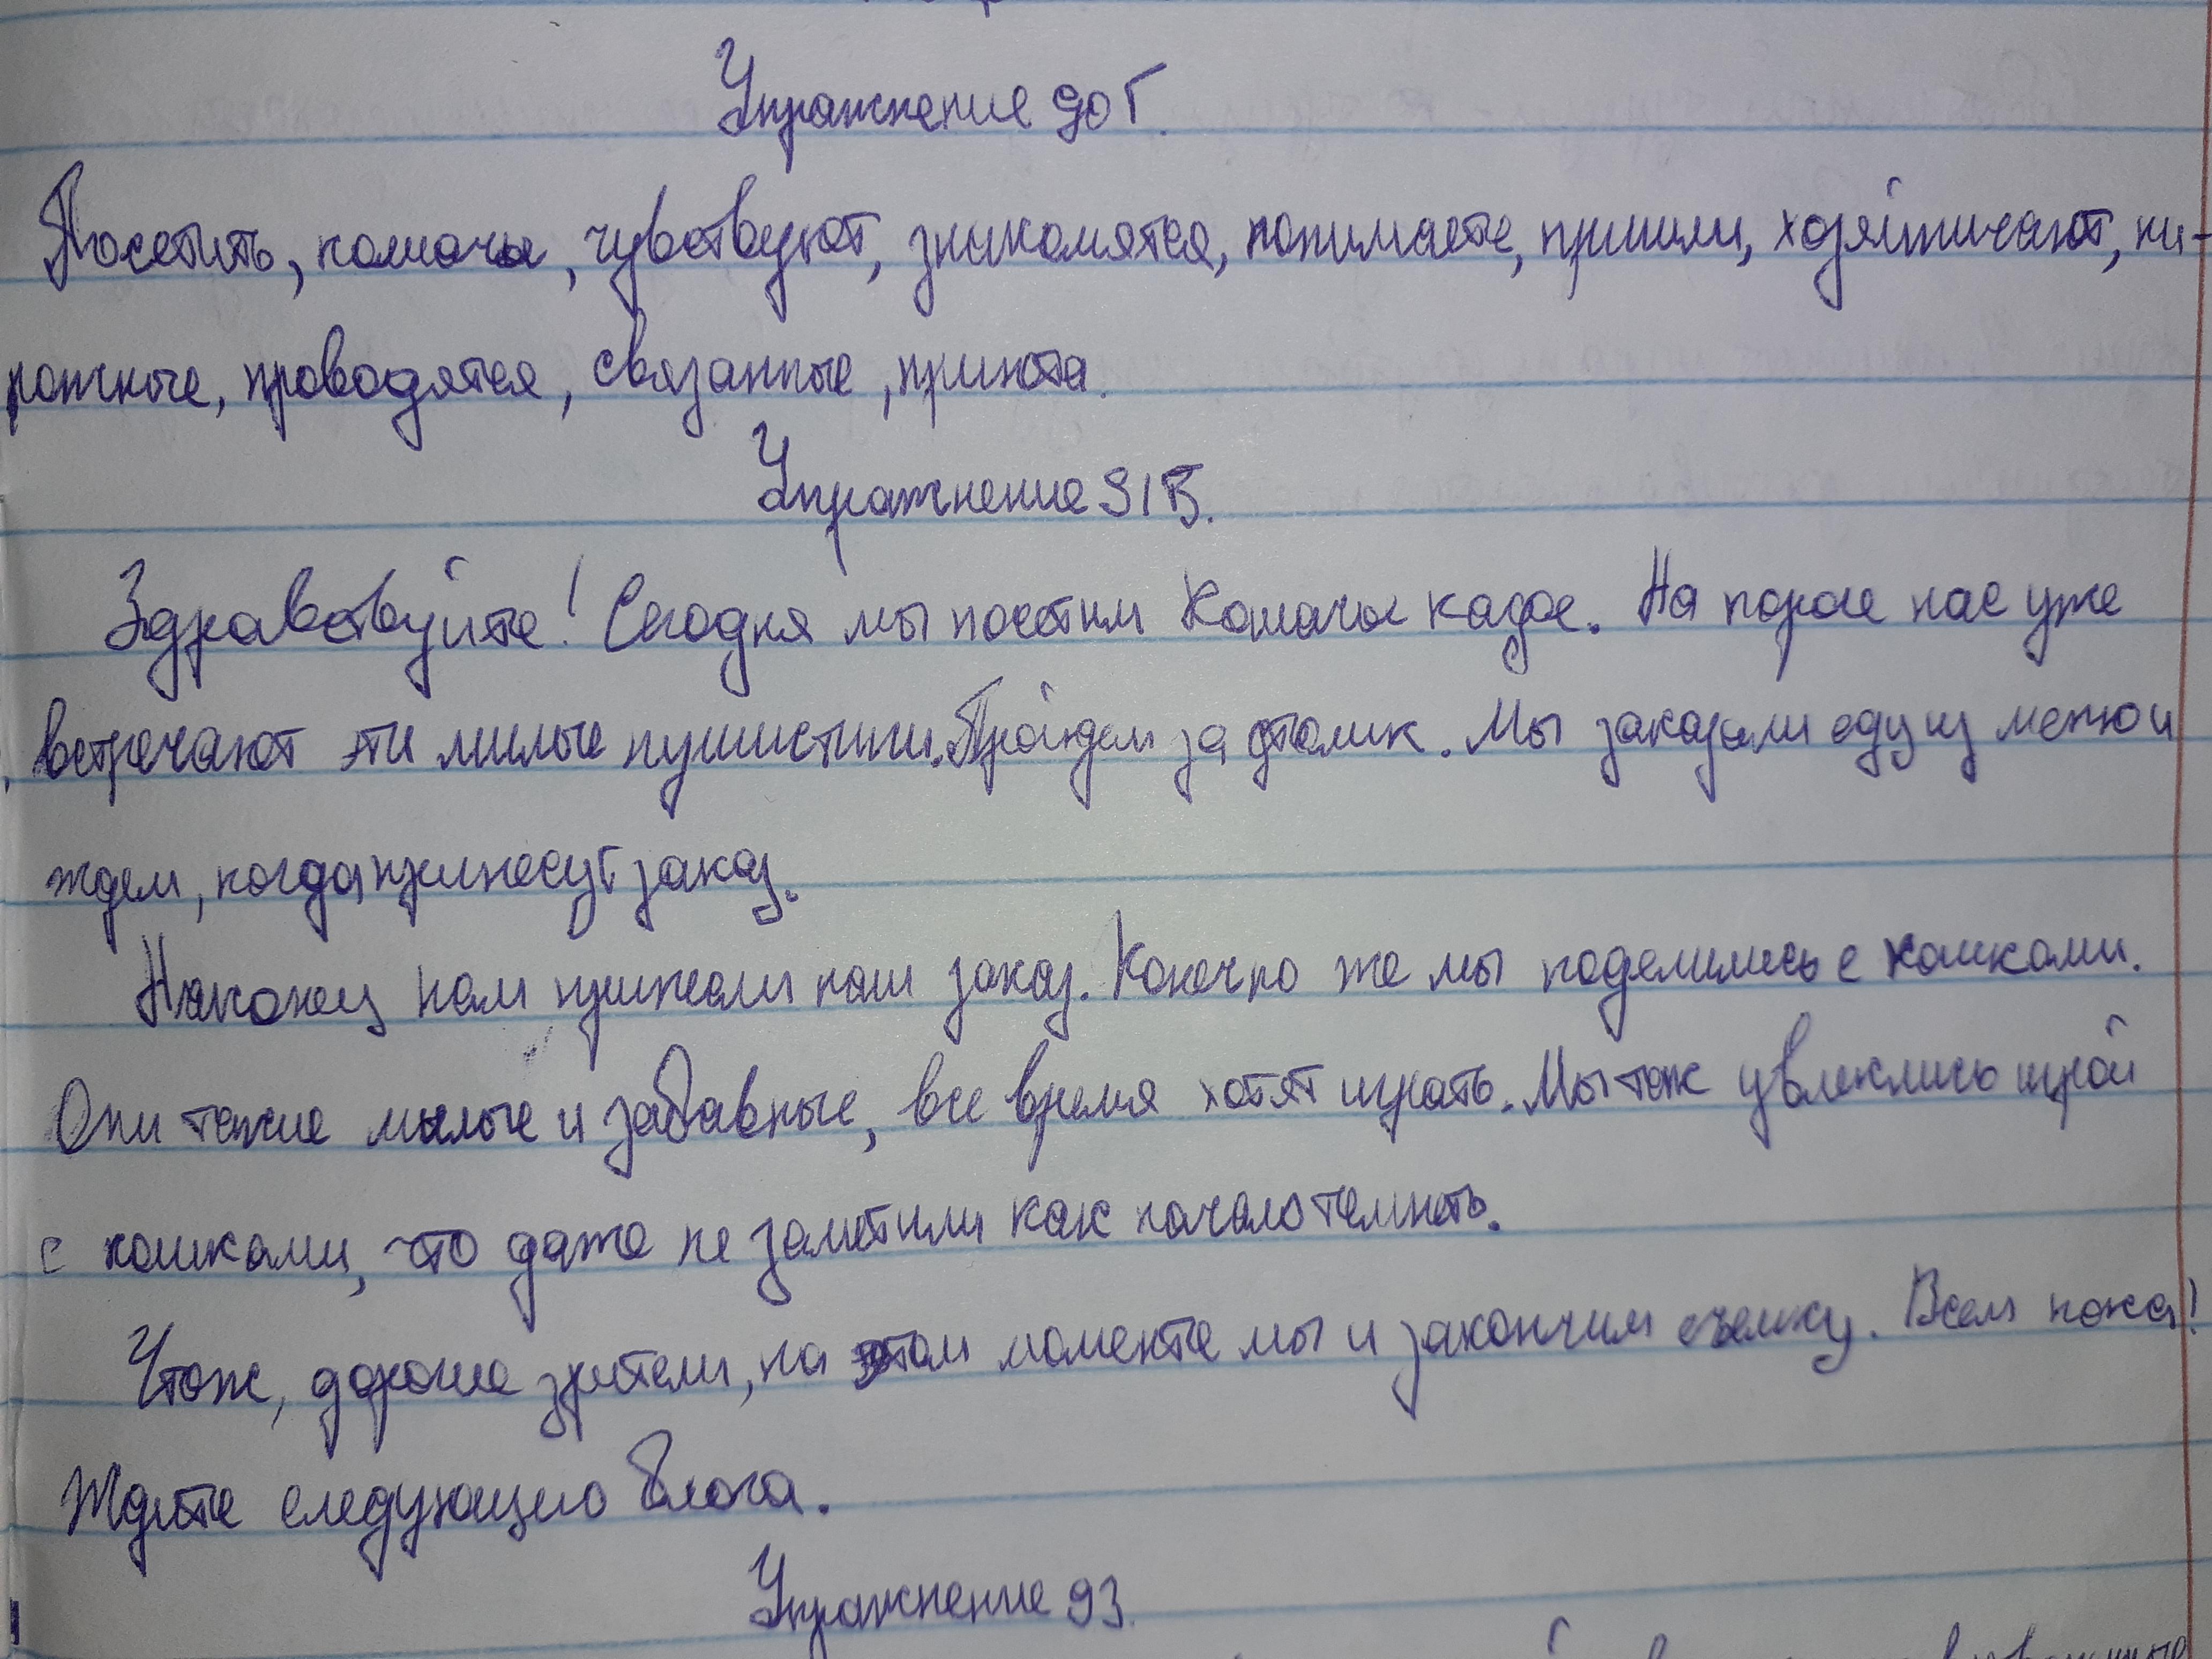 Упражнение 90 Г.
Посетить, кошачье, чувствуют, знакомятся, понимаете, пришли, хозяйничают, пи-
рожные, проводятся, связанные, приюта.
Упражнение 91В.
Здравствуйте! Сегодня мы посетим Кошачье кафе. На пороге нас уже
встречают эти милые пушистики. Пройдем за столик. Мы заказали еду из меню и
ждем, когда принесут заказ.
Наконец нам принесли наш заказ. Конечно же мы поделились с кошками.
Они такие милые и забавные, все время хотят играть. Мы так увлеклись игрой
с кошками, что даже не заметили как начало темнеть.
Чтож, дорогие зрители, на этом моменте мы и закончим съемку. Всем пока!
Ждите следующего влога.
Упражнение 93.